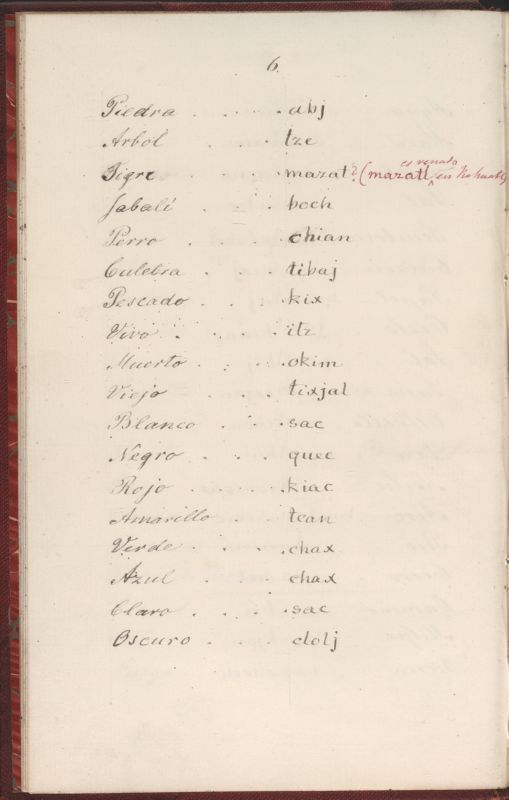 6.
Piedra . . . . abj
Arbol . . . tze
Tigre mazat? (mazatl es venado en Nahuatl)
Jabalí . . . boch
Perro . . . chian
Culebra . . . tibaj
Pescado . . . kix
Vivo . . . itz
Muerto . . . okim
Viejo . . . tixjal
Blanco . . . sac
Negro . . . quec
Rojo . . . kiac
Amarillo . . tean
Verde . . . chax
Azul . . . chax
Claro . . . sac
Oscuro . . . clolj